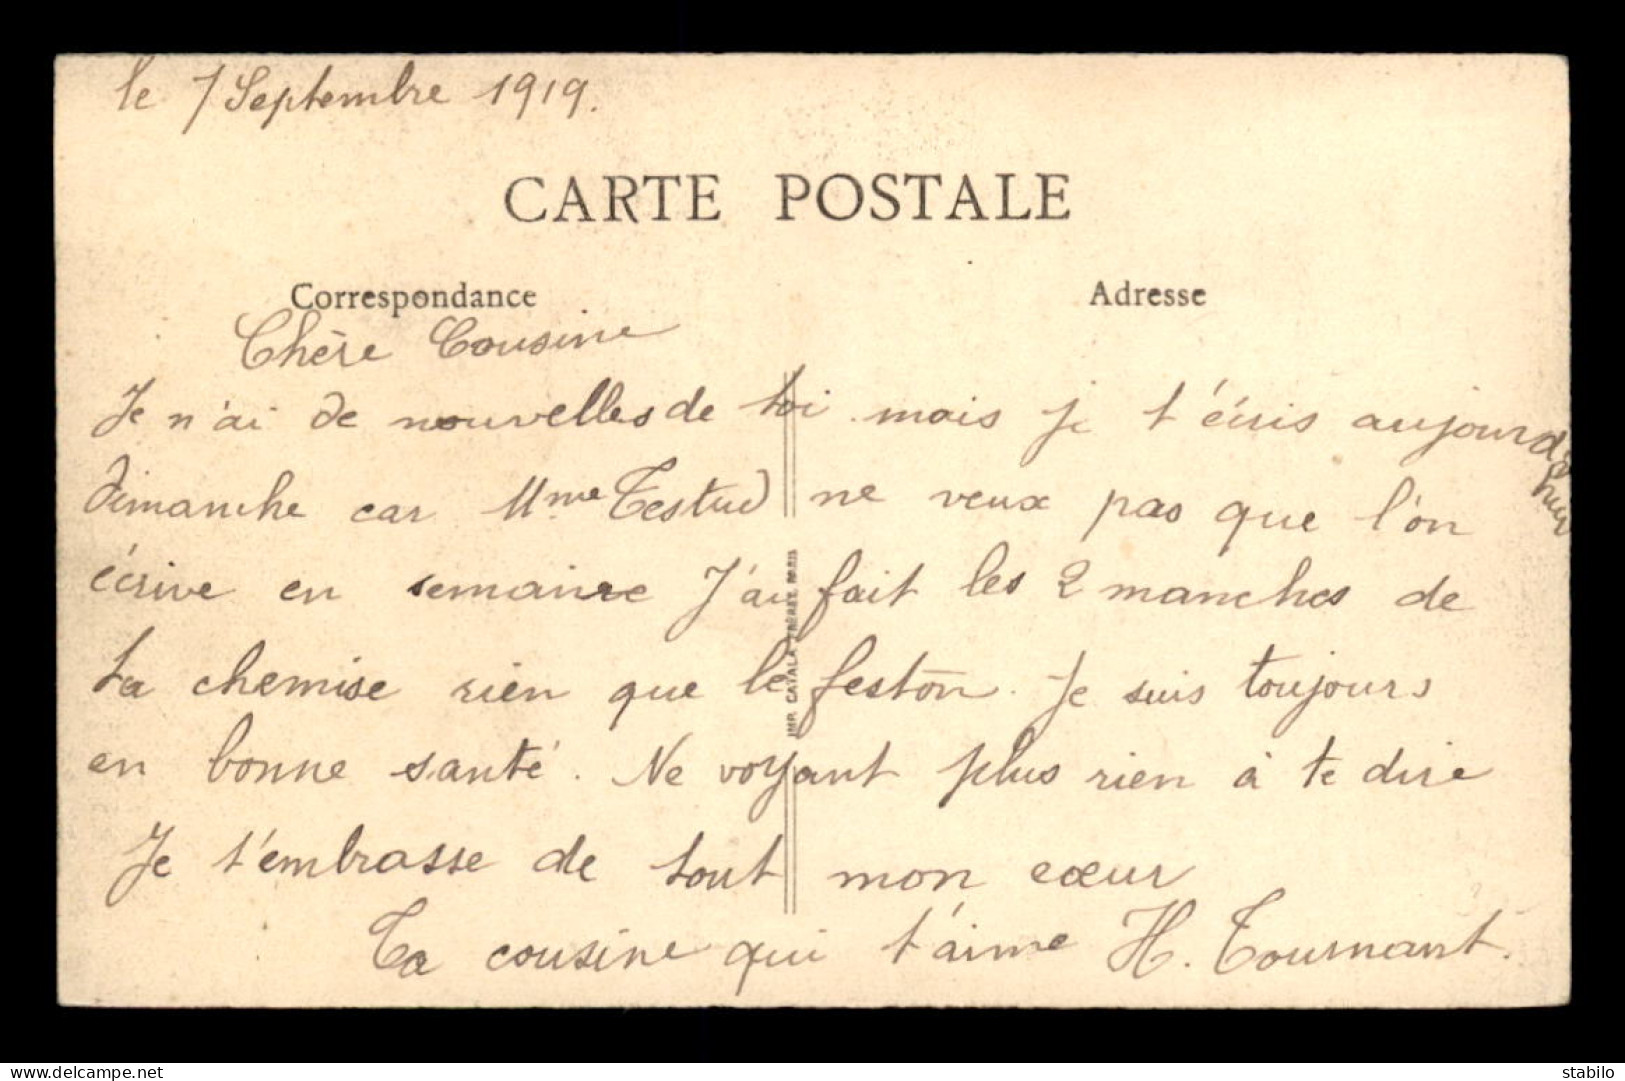 le 7 Septembre 1919.
CARTE POSTALE
Correspondance
Adresse
Chère Cousine
Je n'ai de nouvelles de toi mais je t'écris aujourd'hui
dimanche car Mme Testud ne veux pas que l'on
écrive en semaine J'ai fait les 2 manches de
ta chemise rien que le feston. Je suis toujours
en bonne santé. Ne voyant plus rien à te dire
Je t'embrasse de tout mon cœur
Ta cousine qui t'aime H. Tournant.
IMP. CATALA FRÈRES PARIS
delcampe.net
stabilo